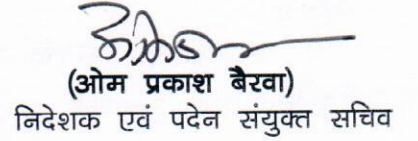 (ओम प्रकाश बैरवा)
निदेशक एवं पदेन संयुक्त सचिव